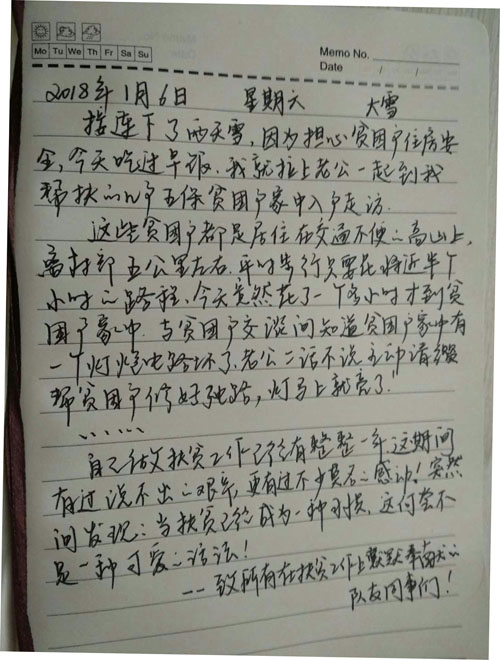 Mo Tu We Th Fr Sa Su
Memo No.
Date / /
2018年1月6日 星期六 大雪
接连下了两天雪，因为担心贫困户住房安
全，今天吃过早饭，我就拉上老公一起到我
帮扶的几户五保贫困户家中入户走访.
这些贫困户都是居住在交通不便的高山上，
离村部五公里左右.平时步行只要花将近半个
小时的路程，今天竟然花了一个多小时才到贫
困户家中.与贫困户交谈间知道贫困户家中有
一个灯炮电路坏了.老公二话不说主动请缨
帮贫困户修好电路，灯马上就亮了!
……
自己做扶贫工作已经有整整一年这期间
有过说不出的艰辛，更有过不少莫名的感动!突然
间发现：当扶贫已经成为一种习惯，这何尝不
是一种可爱的活法!
--致所有在扶贫工作上默默奉献的
队友同事们!